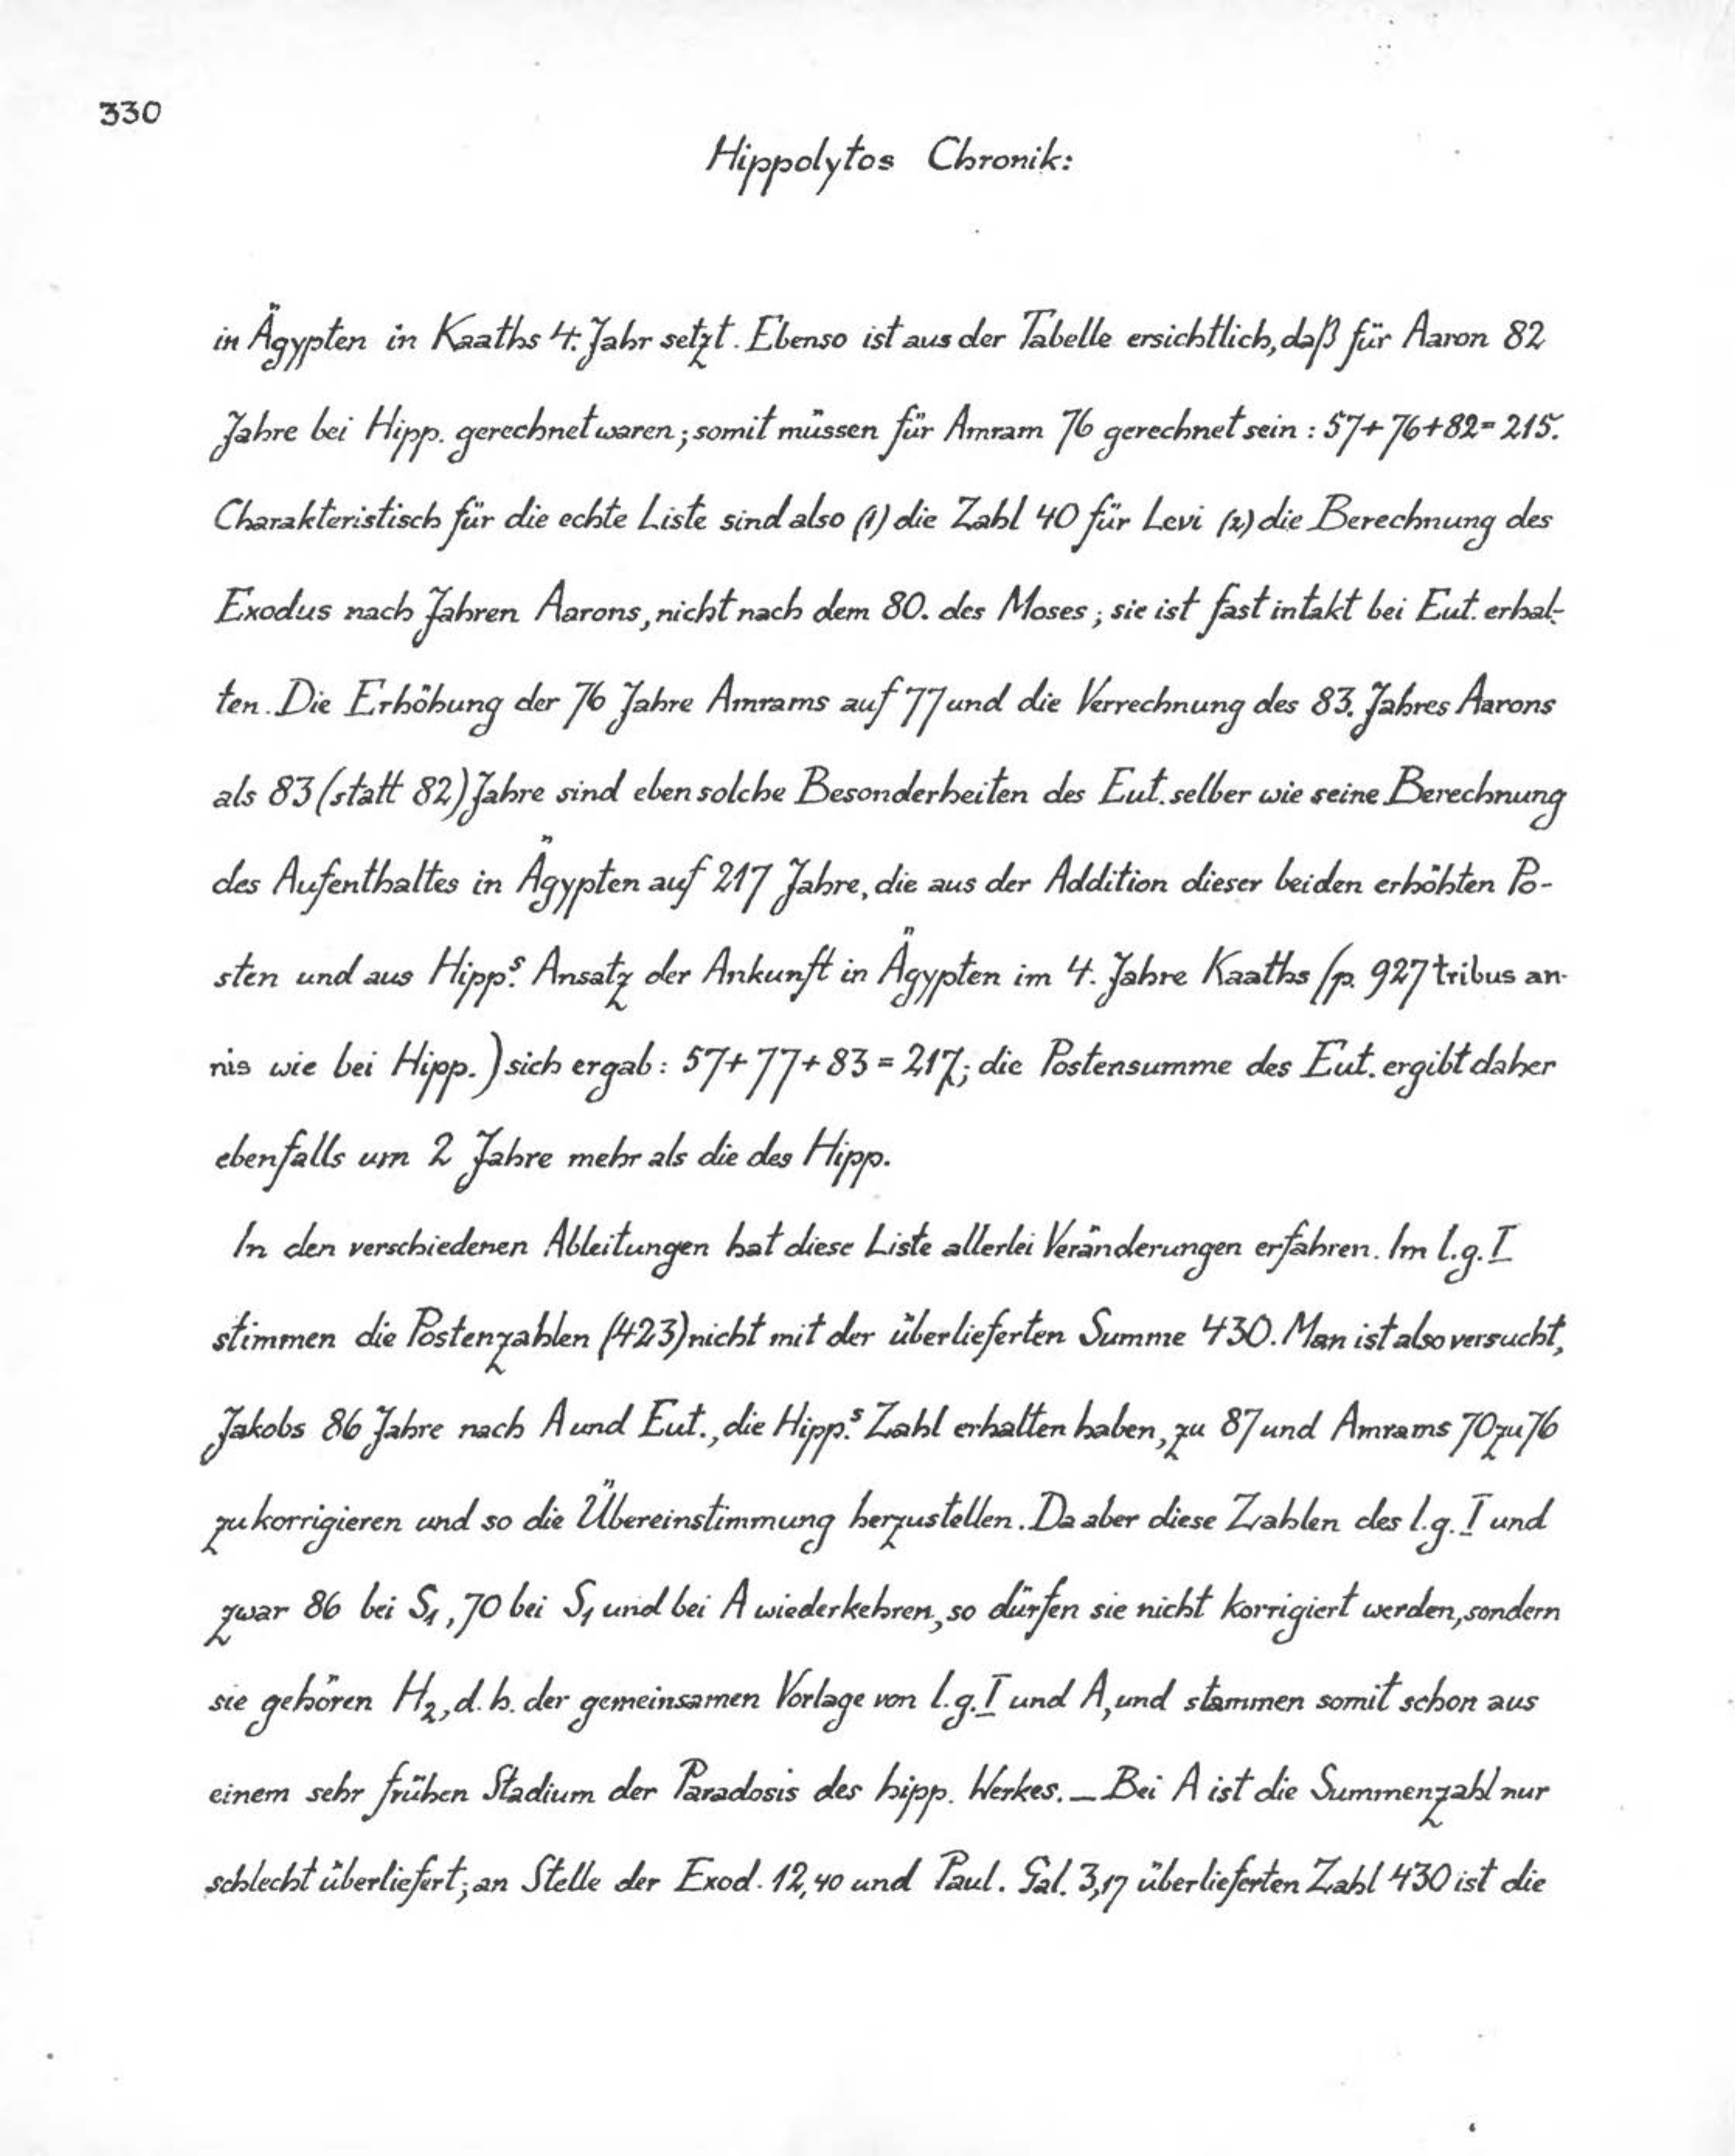 330
Hippolytos Chronik:
in Ägypten in Kaaths 4. Jahr setzt. Ebenso ist aus der Tabelle ersichtlich, daß für Aaron 82
Jahre bei Hipp. gerechnet waren; somit müssen für Amram 76 gerechnet sein: 57+76+82=215.
Charakteristisch für die echte Liste sind also (1) die Zahl 40 für Levi (2) die Berechnung des
Exodus nach Jahren Aarons, nicht nach dem 80. des Moses; sie ist fast intakt bei Eut. erhal-
ten. Die Erhöhung der 76 Jahre Amrams auf 77 und die Verrechnung des 83. Jahres Aarons
als 83 (statt 82) Jahre sind eben solche Besonderheiten des Eut. selber wie seine Berechnung
des Aufenthaltes in Ägypten auf 217 Jahre, die aus der Addition dieser beiden erhöhten Po-
sten und aus Hipp.s Ansatz der Ankunft in Ägypten im 4. Jahre Kaaths (p. 927 tribus an-
nis wie bei Hipp.) sich ergab: 57+77+83=217; die Postensumme des Eut. ergibt daher
ebenfalls um 2 Jahre mehr als die des Hipp.
In den verschiedenen Ableitungen hat diese Liste allerlei Veränderungen erfahren. Im l.g. I
stimmen die Postenzahlen (423) nicht mit der überlieferten Summe 430. Man ist also versucht,
Jakobs 86 Jahre nach A und Eut., die Hipp.s Zahl erhalten haben, zu 87 und Amrams 70 zu 76
zu korrigieren und so die Übereinstimmung herzustellen. Da aber diese Zahlen des l.g. I und
zwar 86 bei S₁, 70 bei S₁ und bei A wiederkehren, so dürfen sie nicht korrigiert werden, sondern
sie gehören H₂, d. h. der gemeinsamen Vorlage von l.g. I und A, und stammen somit schon aus
einem sehr frühen Stadium der Paradosis des hipp. Werkes. — Bei A ist die Summenzahl nur
schlecht überliefert; an Stelle der Exod. 12,40 und Paul. Gal. 3,17 überlieferten Zahl 430 ist die